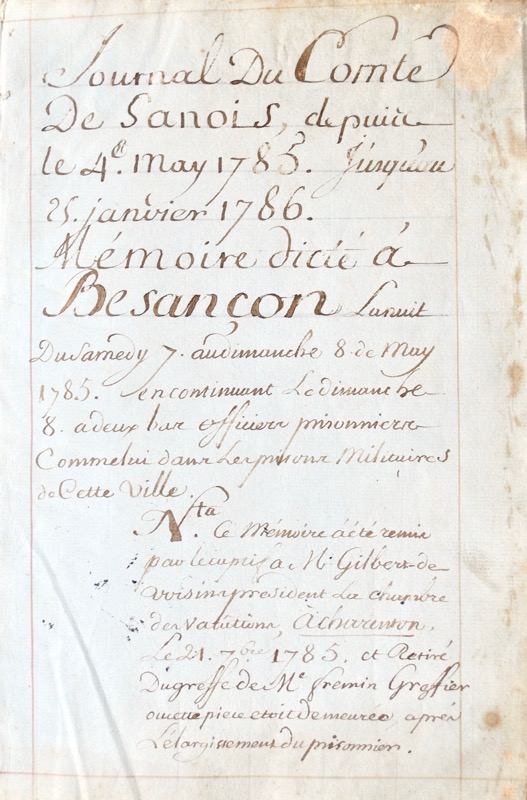 Journal Du Comte
De Sanois, depuis
le 4e. May 1785. Jusqu'au
25. janvier 1786.
Mémoire dicté à
Besançon La nuit
Du Samedy 7. au dimanche 8. de May
1785. en continuant Le dimanche
8. a deux bas officiers prisonniers
Comme lui dans Les prisons Militaires
de Cette Ville.
Nta. Ce Mémoire a été remis
par le captif a Mr. Gilbert de
Voisin president La chambre
des Vacations, À Charenton,
Le 21. 7bre. 1785. et Retiré
Du greffe de Me. fremin Greffier
ou cette piece etoit demeurée après
L'élargissement du prisonnier.